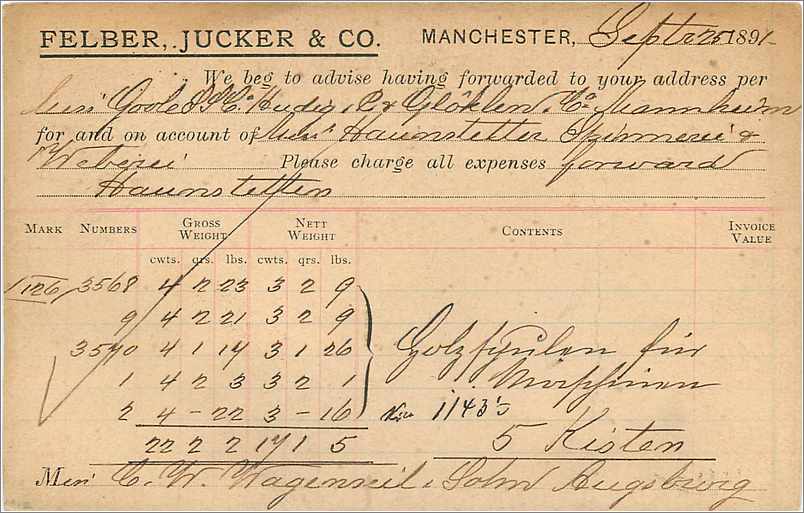 FELBER, JUCKER & CO. MANCHESTER, Septr 25 1891
We beg to advise having forwarded to your address per
Mess Goole S S Co Huder, C & Glöklen, Co Mannheim
for and on account of Mess Haunstetter Spinnerei &
Weberei Please charge all expenses forward
Haunstetten
MARK NUMBERS GROSS WEIGHT NETT WEIGHT CONTENTS INVOICE VALUE
cwts. qrs. lbs. cwts. qrs. lbs.
1126 3568 4 2 23 3 2 9
9 4 2 21 3 2 9
3570 4 1 17 3 1 26 Holzspulen für
1 4 2 3 3 2 1 Maschinen
2 4 - 22 3 - 16 Kilo 1143,5
22 2 2 17 1 5 5 Kisten
Mess C. W. Wagenseil, Sohn Augsburg